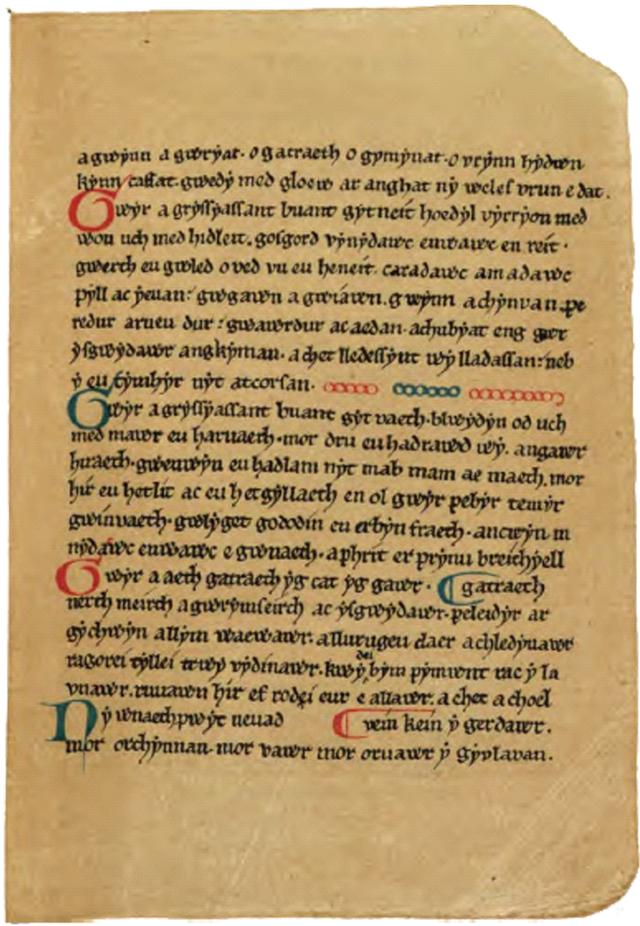 a gỽẏnn a gỽrẏat. o gatraeth o gẏmẏnat. o vrẏnn hẏdỽn
kẏnn caffat. gỽedẏ med gloeỽ ar anghat nẏ ỽeles vrun e dat.
Gỽẏr a grẏssẏassant buant gẏt neit hoedẏl vẏrrẏon med
ỽon uch med hidleit. gosgord vẏnẏdaỽc enỽaỽc en reit.
gỽerth eu gỽled o ved vu eu heneit. caradaỽc a madaỽc
pẏll ac ẏeuan; gỽgaỽn a gỽiaỽn. gỽẏnn a chẏnvan. pe
redur arueu dur; gỽaỽrdur ac aedan. achubẏat eng gaỽr
ẏsgỽẏdaỽr angkẏman. a chet lledessẏnt ỽẏ lladassan; neb
ẏ eu tẏmhẏr nẏt atcorsan.
Gỽẏr a grẏssẏassant buant gẏt vaeth. blỽẏdẏn od uch
med maỽr eu haruaeth. mor dru eu hadraỽd ỽẏ. angaỽr
hiraeth. gỽenỽẏn eu hadlam nẏt mab mam ae maeth. mor
hir eu hetlit ac eu hetgẏllaeth en ol gỽẏr pebẏr temẏr
gỽinvaeth. gỽlẏget gododin eu erbẏn fraeth. ancỽẏn m
nẏdaỽc enỽaỽc e gỽnaeth. a phrit er prẏnu breithẏell
Gỽẏr a aeth gatraeth ẏg cat ẏg gaỽr. gatraeth
nerth meirch a gỽrẏmseirch ac ẏsgỽẏdaỽr. peleidẏr ar
gẏchỽẏn a llẏm ỽaeỽaỽr. a llurugeu claer a chledẏuaỽr
ragorei tẏllei trỽẏ vẏdinaỽr. kỽẏdei bẏm pẏmỽnt rac ẏ la
vnaỽr. ruuaỽn hir ef rodei eur e allaỽr. a chet a choel
vein kein ẏ gerdaỽr.
Nẏ ỽnaethpỽẏt neuad
mor orchẏnnan. mor vaỽr mor oruaỽr ẏ gẏvlavan.